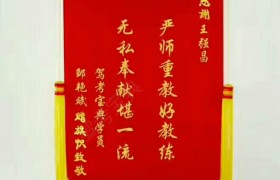 感谢王强昌
严师重教好教练
无私奉献堪一流
驾考宝典学员
邹艳斌赠旗帜致敬